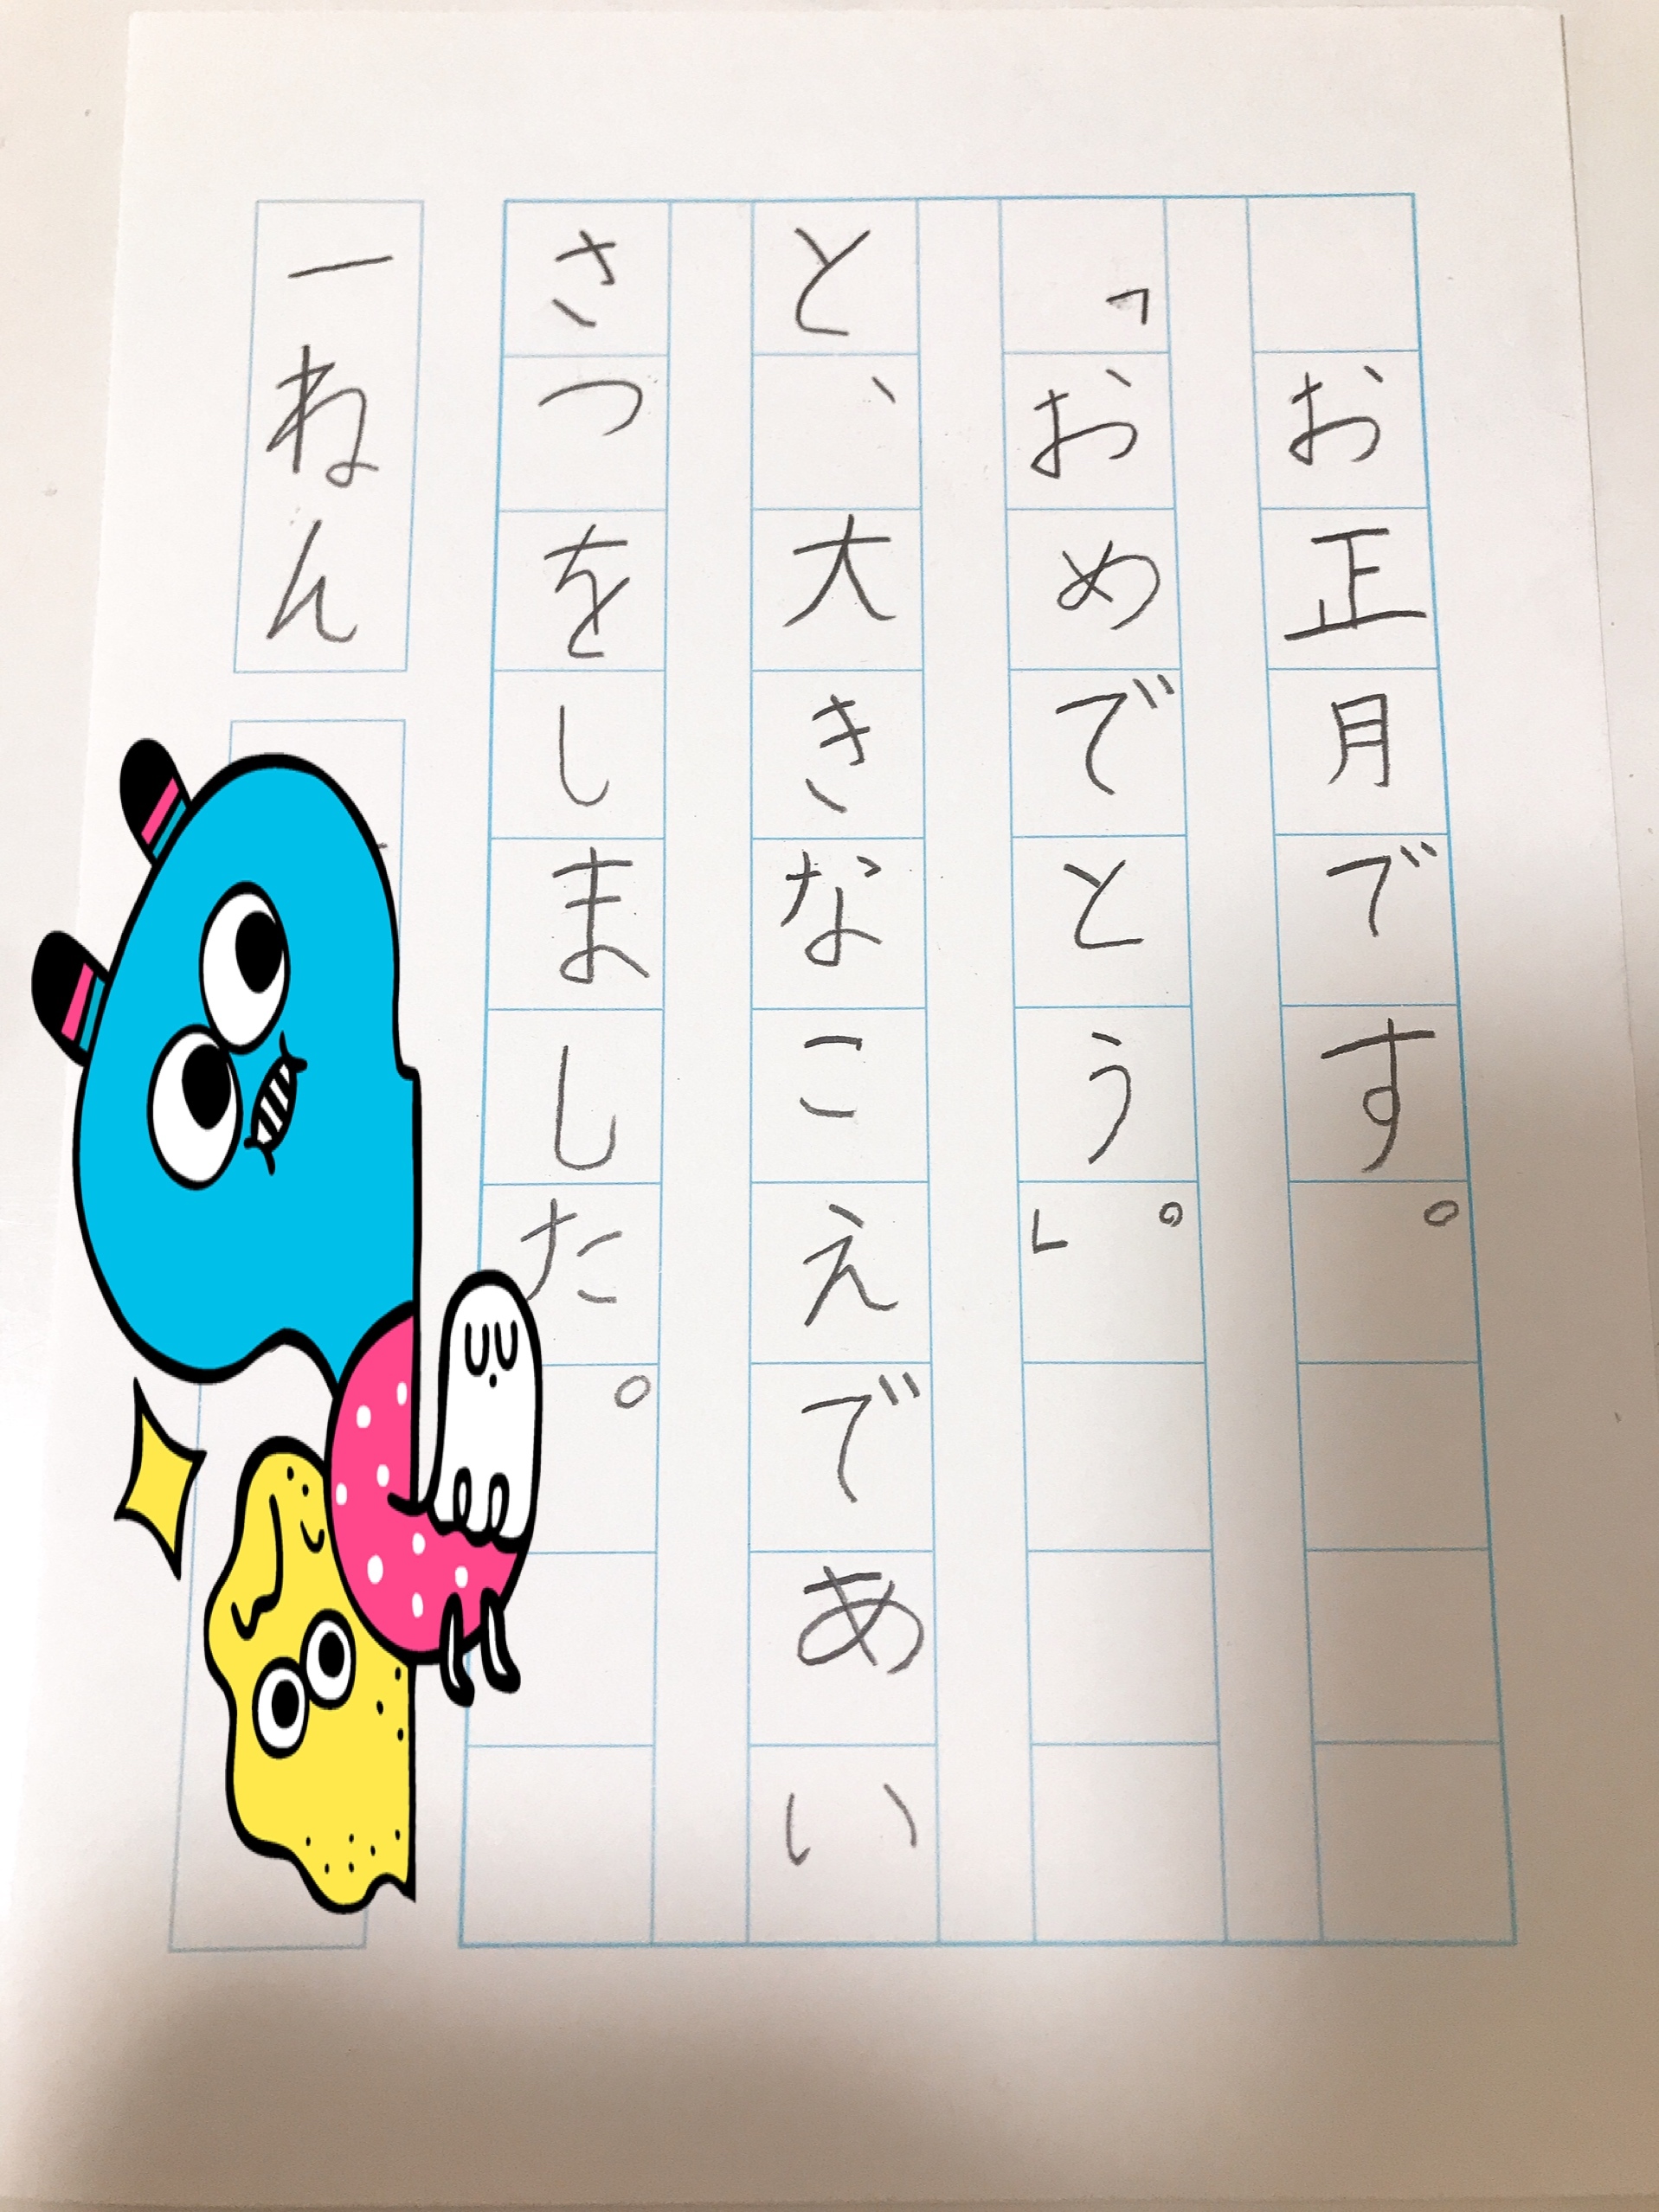 お正月です。
「おめでとう。」
と、大きなこえであい
さつをしました。
一ねん